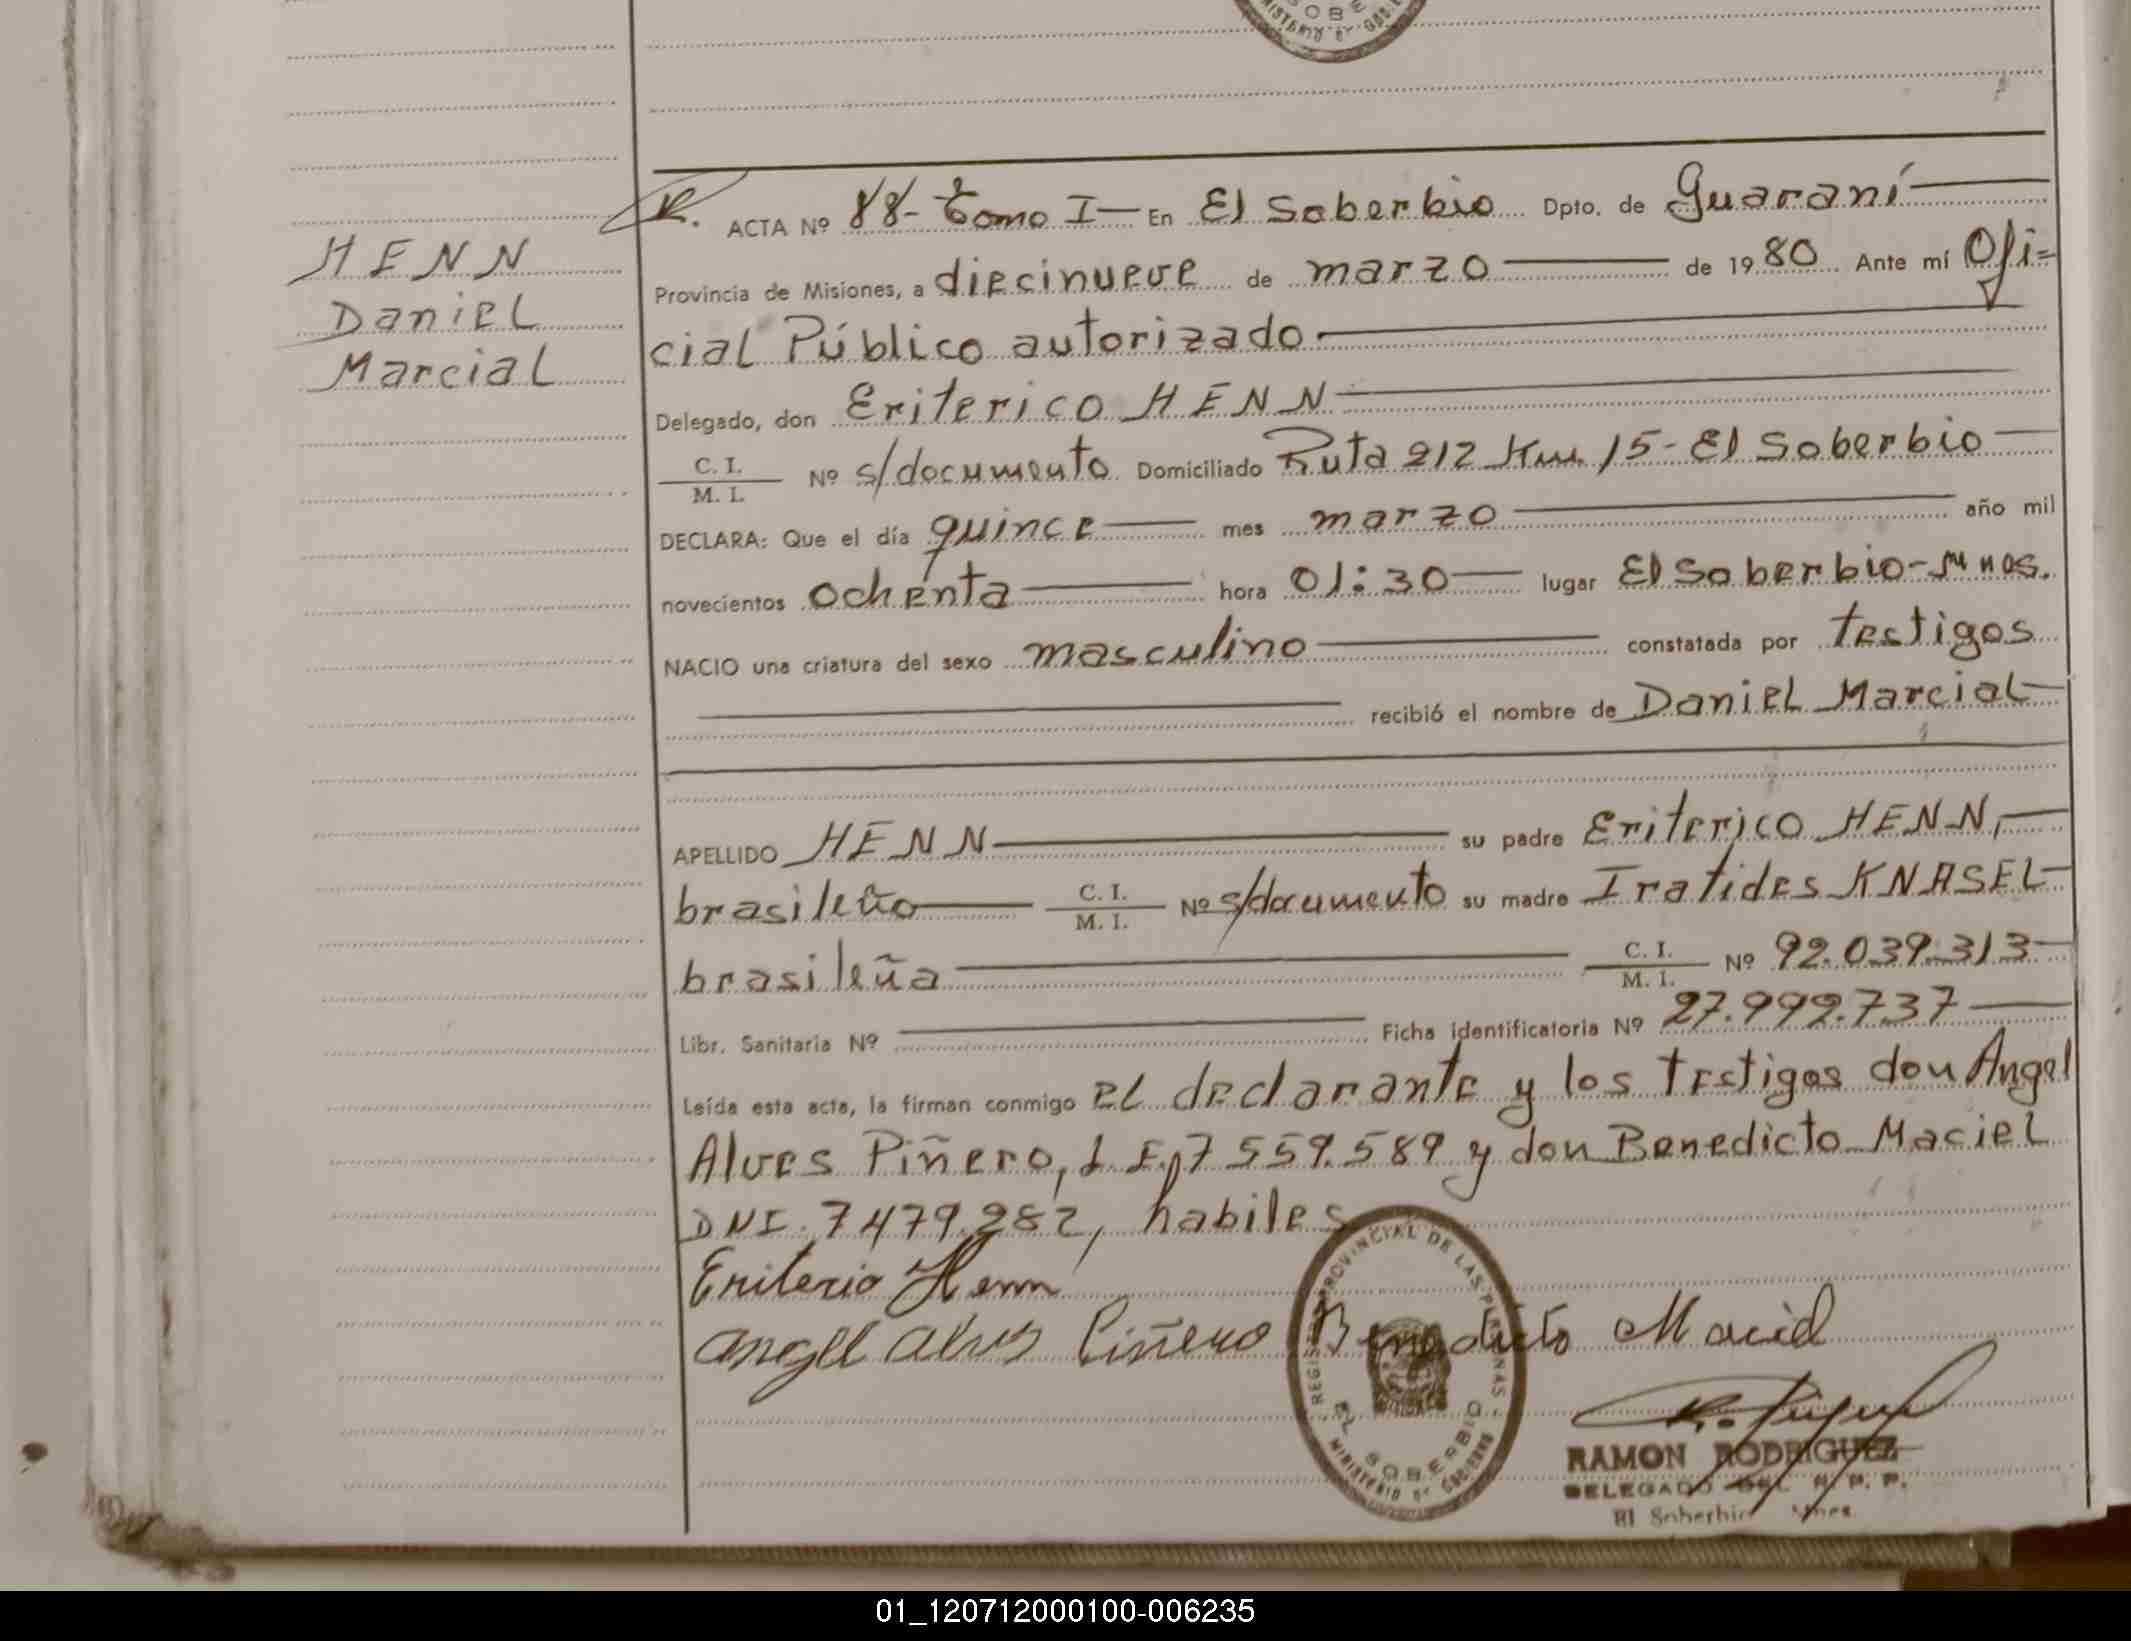 SOBE
MINISTERIO DE GOB
HENN
Daniel
Marcial
R. ACTA Nº 88- Tomo I- En El Soberbio Dpto. de Guaraní
Provincia de Misiones, a diecinueve de marzo de 1980 Ante mí Ofi=
cial Público autorizado
Delegado, don Eriterico HENN
C. I. / M. I. Nº s/documento Domiciliado Ruta 212 Km 15- El Soberbio
DECLARA: Que el día quince mes marzo año mil
novecientos ochenta hora 01:30 lugar El Soberbio-Mnes.
NACIO una criatura del sexo masculino constatada por testigos
recibió el nombre de Daniel Marcial
APELLIDO HENN su padre Eriterico HENN,
brasileño C. I. / M. I. Nº s/documento su madre Iratides KNASEL
brasileña C. I. / M. I. Nº 92.039.313
Libr. Sanitaria Nº Ficha identificatoria Nº 27.992.737
Leída esta acta, la firman conmigo el declarante y los testigos don Angel
Alves Piñero, L.E. 7 559.589 y don Benedicto Maciel
DNI. 7479.282, habiles
Eriterio Henn
Angel Alves Piñero Benedicto Maciel
REGISTRO PROVINCIAL DE LAS PERSONAS
EL SOBERBIO
MINISTERIO DE GOBIERNO
RAMON RODRIGUEZ
DELEGADO DEL R. P. P.
El Soberbio Mnes.
01_120712000100-006235